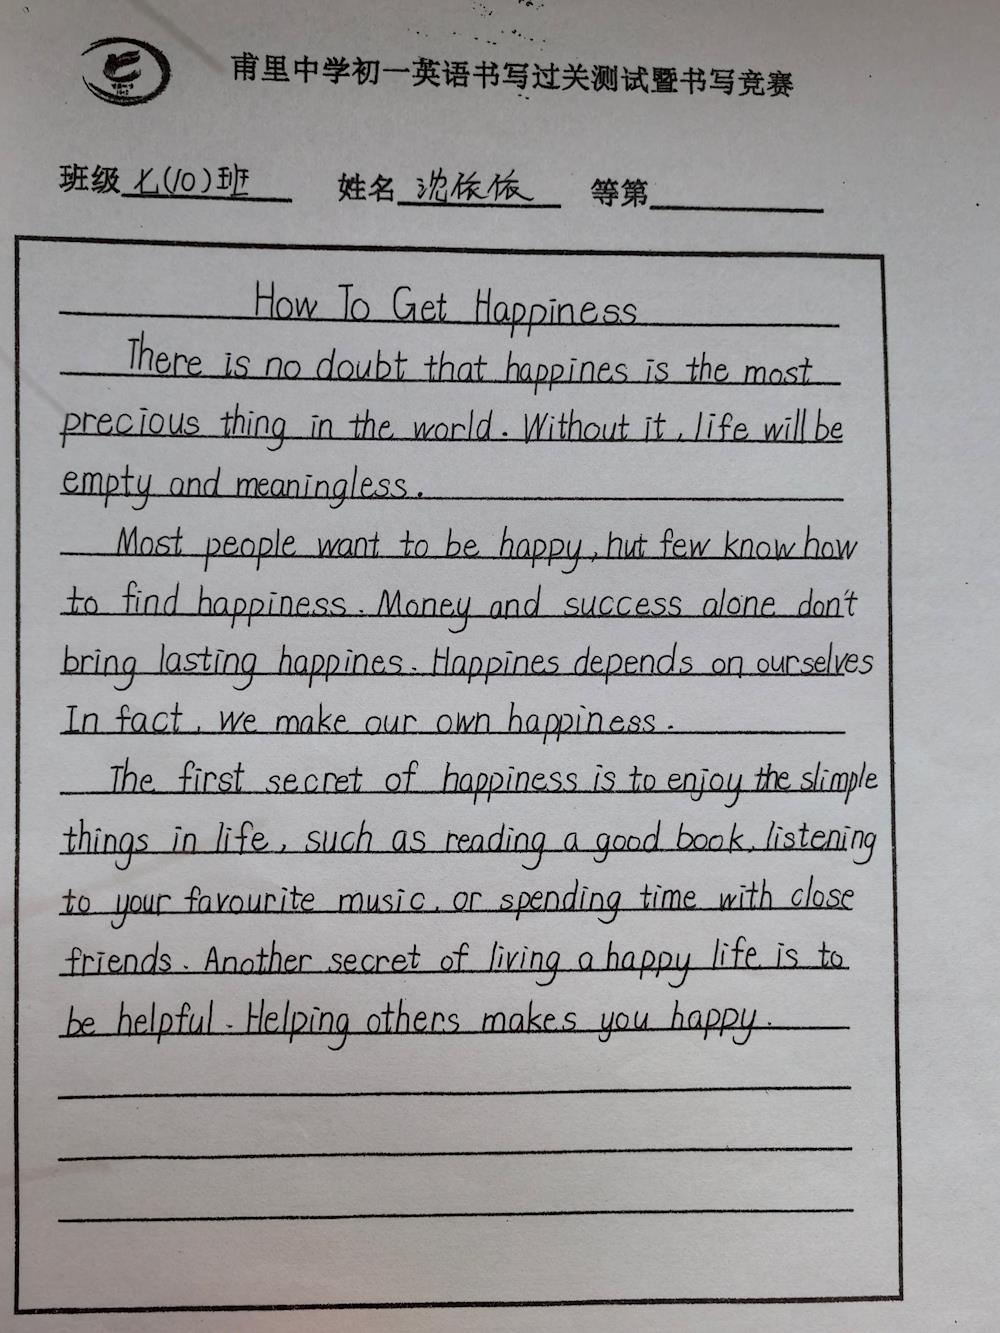 甫里中学初一英语书写过关测试暨书写竞赛
班级 七(10)班 姓名 沈依依 等第
How To Get Happiness
There is no doubt that happines is the most
precious thing in the world. Without it, life will be
empty and meaningless.
Most people want to be happy, hut few know how
to find happiness. Money and success alone don't
bring lasting happines. Happines depends on ourselves
In fact, we make our own happiness.
The first secret of happiness is to enjoy the slimple
things in life, such as reading a good book, listening
to your favourite music, or spending time with close
friends. Another secret of living a happy life is to
be helpful. Helping others makes you happy.